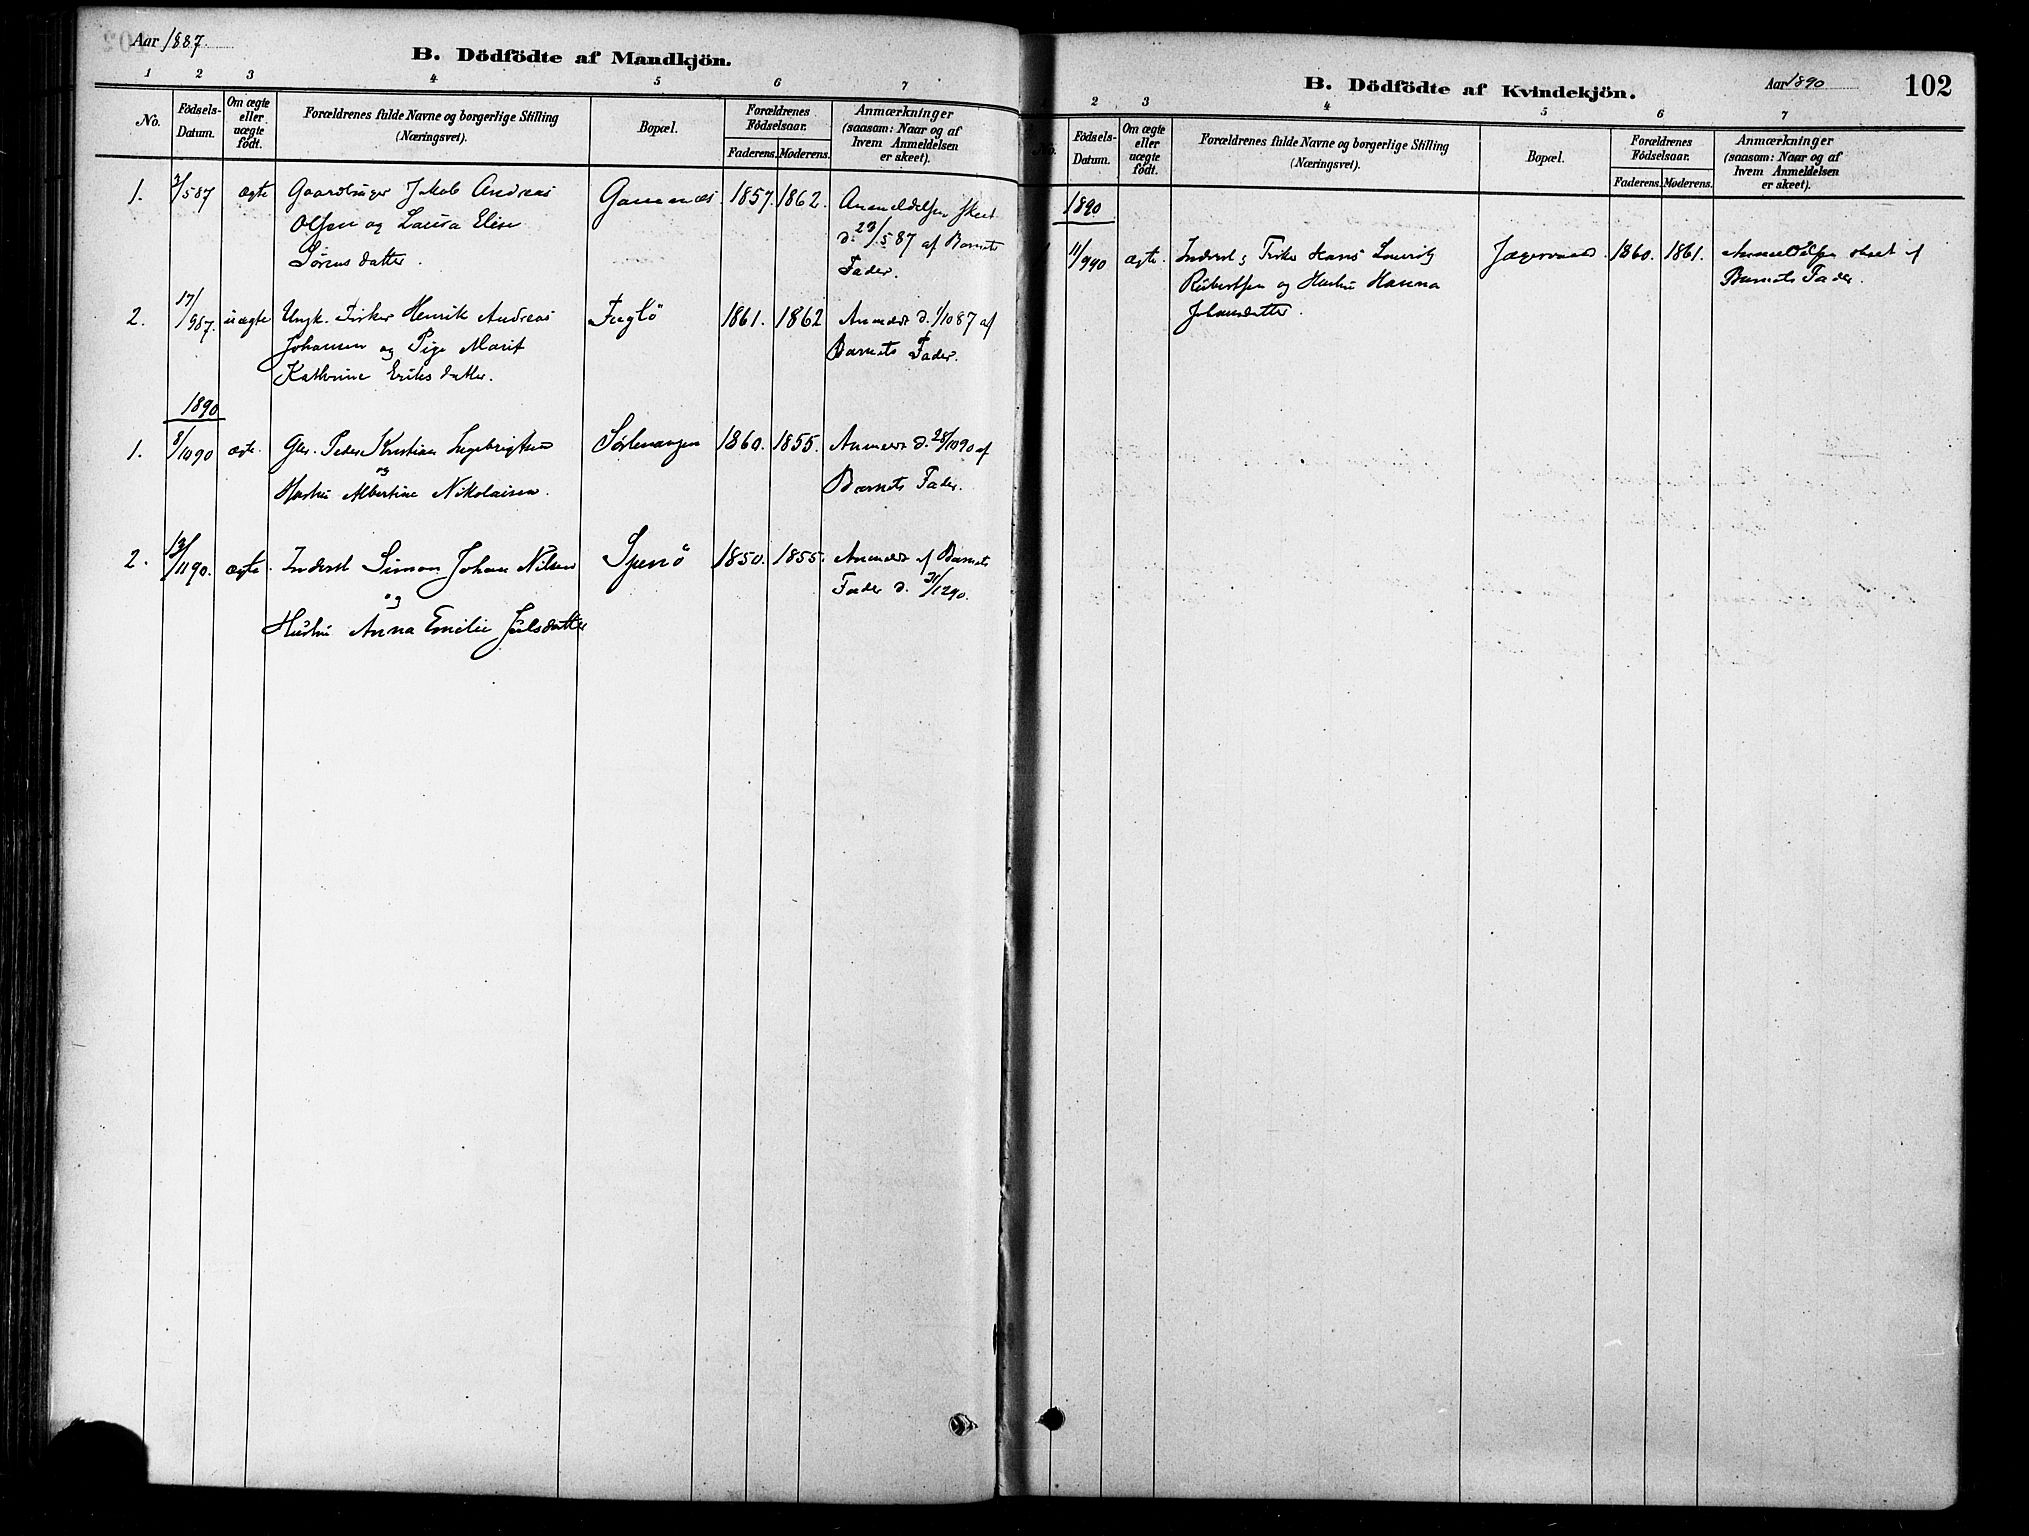 Aar 1887.
B. Dödfödte af Mandkjön.
1 2 3 4 5 6 7
No.
Födsels-
Datum.
Om ægte
eller
uægte
födt.
Forældrenes fulde Navne og borgerlige Stilling
(Næringsvei).
Bopæl.
Forældrenes
Födselsaar.
Faderens. Moderens.
Anmærkninger
(saasom: Naar og af
hvem Anmeldelsen
er skeet).
1. 2/5 87 ægte Gaardbruger Jakob Andreas Gamnæs 1857. 1862. Anmeldelsen skeet
Olsen og Laura Elise d. 23/5 87 af Barnets
Sørensdatter. Fader.
2. 17/9 87. uægte Ungk. Fisker Henrik Andreas Fuglö 1861. 1862 Anmeldt d. 1/10 87 af
Johansen og Pige Marit Barnets Fader.
Kathrine Eriksdatter.
1890
1. 8/10 90 ægte. Gbr. Peder Kristian Ingebrigtsen Sørlenangen 1860. 1855. Anmeldt d. 28/10 90 af
og
Hustru Albertine Nikolaisen. Barnets Fader.
2. 13/11 90. ægte. Inderst Simon Johan Nilsen Spenö 1850. 1855. Anmeldt af Barnets
og Fader d. 31/12 90.
Hustru Anna Emilie Julsdatter
B. Dödfödte af Kvindekjön.
Aar 1890
102
2 3 4 5 6 7
No.
Födsels-
Datum.
Om ægte
eller
uægte
födt.
Forældrenes fulde Navne og borgerlige Stilling
(Næringsvei).
Bopæl.
Forældrenes
Födselsaar.
Faderens. Moderens.
Anmærkninger
(saasom: Naar og af
hvem Anmeldelsen
er skeet).
1890
1 11/9 90 ægte. Inderst & Fisker Hans Lauritz Jægervand. 1860. 1861. Anmeldelsen skeet af
Robertsen og Hustru Hanna Barnets Fader.
Johansdatter.